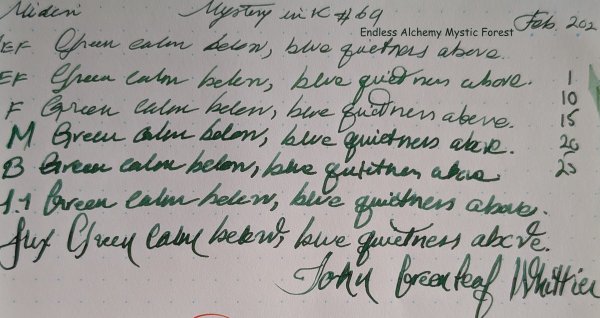 Midori Mystery ink #69 Feb. 202
Endless Alchemy Mystic Forest
EF Green calm below, blue quietness above.
EF Green calm below, blue quietness above. 1
F Green calm below, blue quietness above. 10
15
M Green calm below, blue quietness above. 20
B Green calm below, blue quietness above 25
1.1 Green calm below, blue quietness above.
flex Green calm below, blue quietness above.
John Greenleaf Whittier